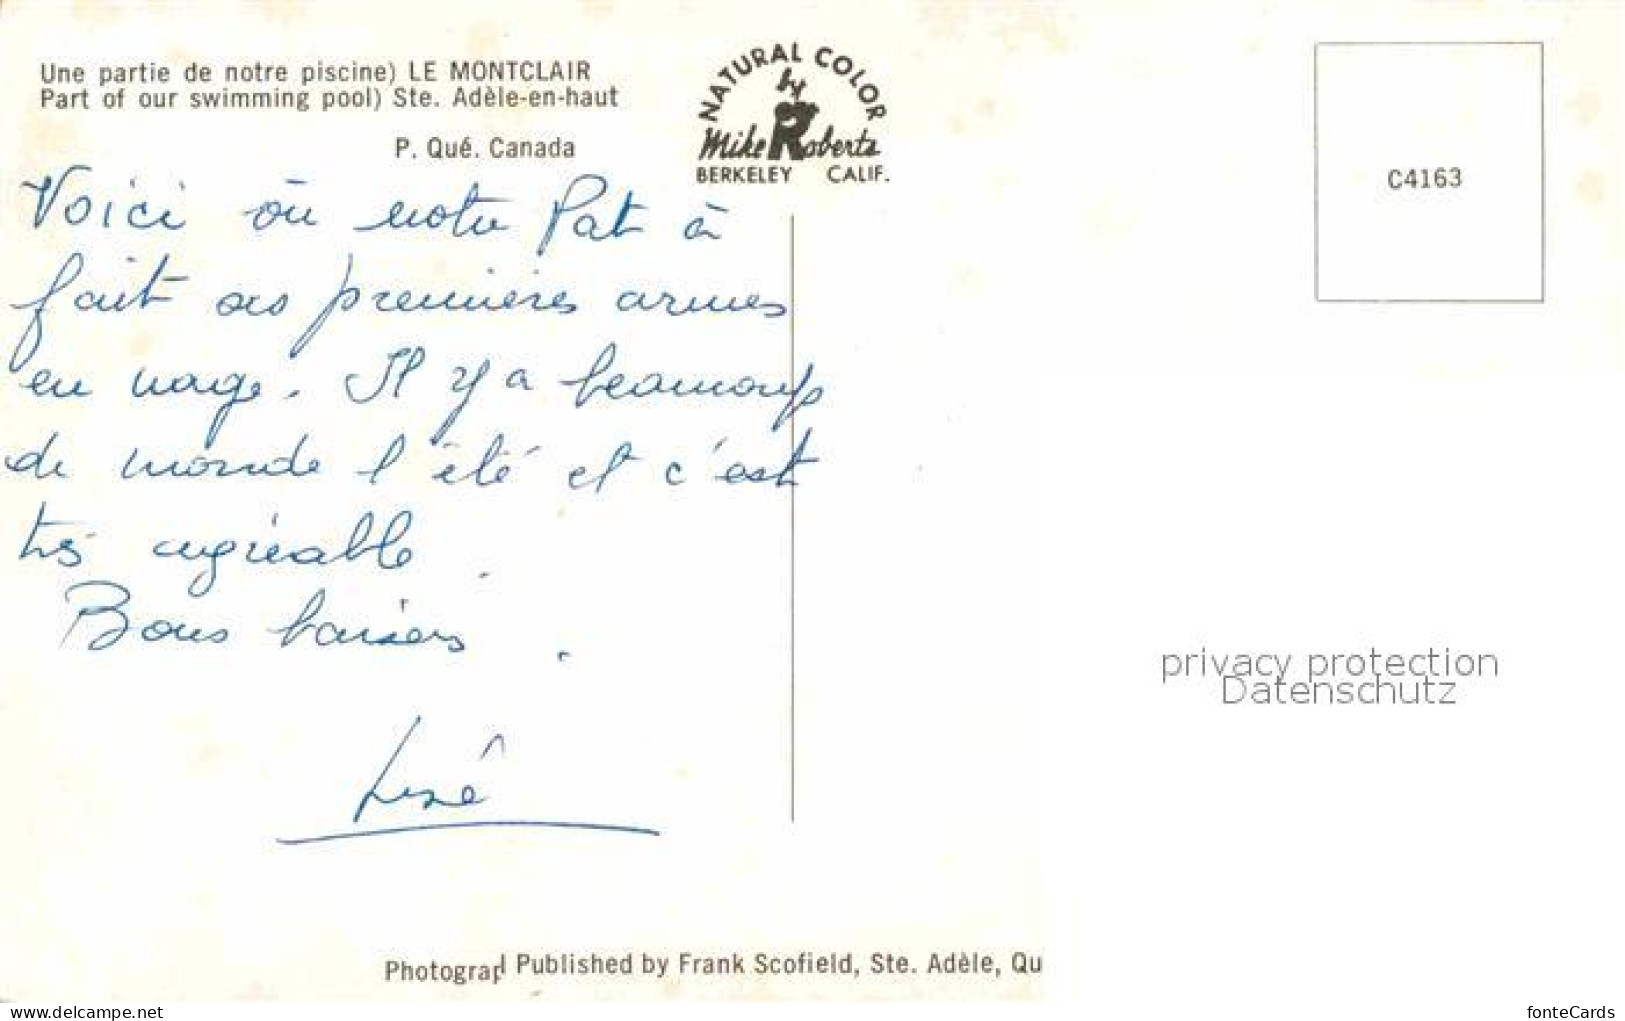 Une partie de notre piscine) LE MONTCLAIR
Part of our swimming pool) Ste. Adèle-en-haut
P. Qué. Canada
NATURAL COLOR
by
Mike Roberts
BERKELEY CALIF.
C4163
Voici où notre Pat à
fait ses premières armes
en nage. Il y a beaucoup
de monde l'été et c'est
très agréable.
Bons baisers.
privacy protection
Datenschutz
Photograp Published by Frank Scofield, Ste. Adèle, Qu
www.delcampe.net
fonteCards